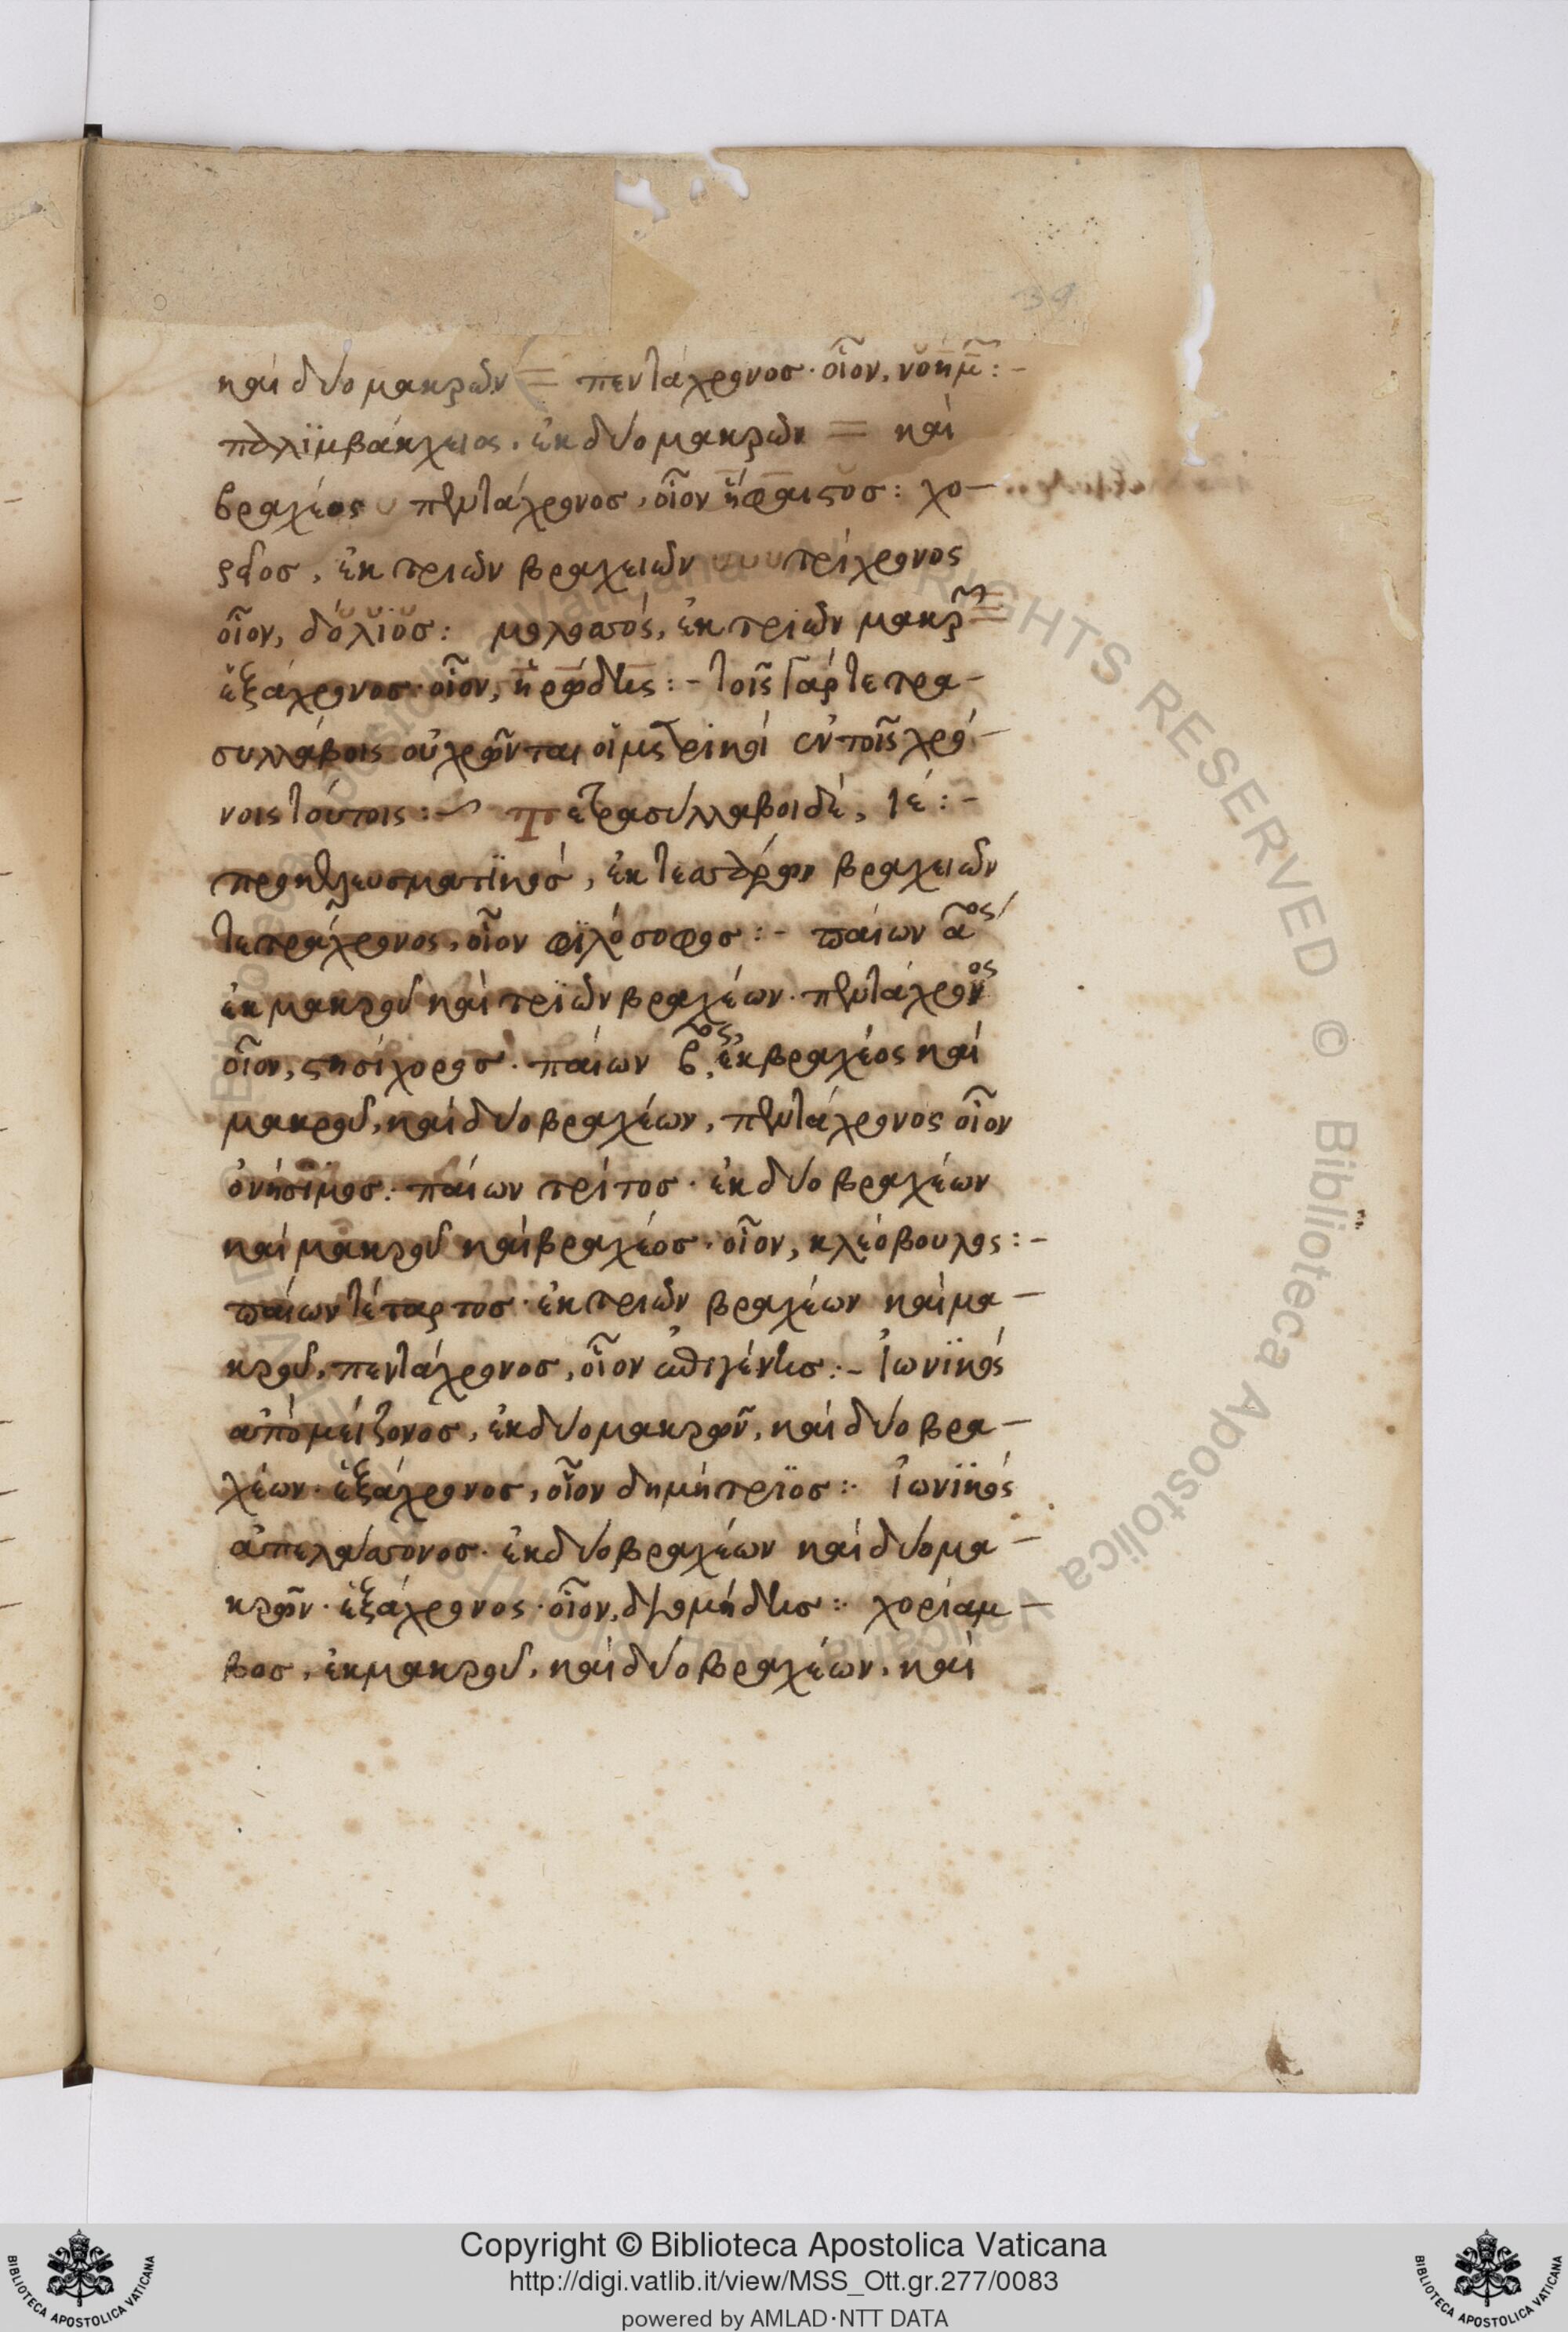 καὶ δύο μακρῶν πενταχρονοσ· οἷον, νοημ̅:-
παλϊμβάκχειος. ἐκ δύο μακρῶν καὶ
βραχέος πεντάχρονοσ, οἷον ἥφαιστοσ: χο-
ρεῖοσ, ἐκ τριῶν βραχειῶν τρίχρονος
οἷον, δόλϊοσ: μολοσσός, ἐκ τριῶν μακρ
ἑξάχρονοσ· οἷον, ἡρώδης:- τοῖς γὰρ τετρα-
συλλάβοις οὐ χρῶνται οἱ μετρικοὶ ἐν τοῖς χρό-
νοις τούτοις:- Τετρασύλλαβοι δέ, ιϛ:-
προκελευσματϊκόσ, ἐκ τεσσάρων βραχειῶν
τετράχρονος, οἷον φϊλόσοφοσ:- παίων α^ος
ἐκ μακροῦ καὶ τρϊῶν βραχέων. πεντάχρον^ος
οἷον, στησίχοροσ. παίων β^ος, ἐκ βραχέος καὶ
μακροῦ, καὶ δύο βραχέων, πεντάχρονος οἷον
ὀνήσϊμοσ: παίων τρίτοσ· ἐκ δύο βραχέων
καὶ μακροῦ καὶ βραχέοσ· οἷον, κλεόβουλος:-
παίων τέταρτοσ· ἐκ τριῶν βραχέων καὶ μα-
κροῦ, πεντάχρονοσ, οἷον ἐπιγένησ:- ἰωνϊκός
ἀπὸ μείζονοσ, ἐκ δύο μακρῶν, καὶ δύο βρα-
χέων· ἑξάχρονοσ, οἷον δημήτρϊοσ: ἰωνϊκός
ἀπελάσσονοσ· ἐκ δύο βραχέων καὶ δύο μα-
κρῶν· ἑξάχρονος· οἷον, διομήδησ: χορίαμ-
βοσ, ἐκ μακροῦ, καὶ δύο βραχέων, καὶ
Copyright © Biblioteca Apostolica Vaticana
http://digi.vatlib.it/view/MSS_Ott.gr.277/0083
powered by AMLAD·NTT DATA